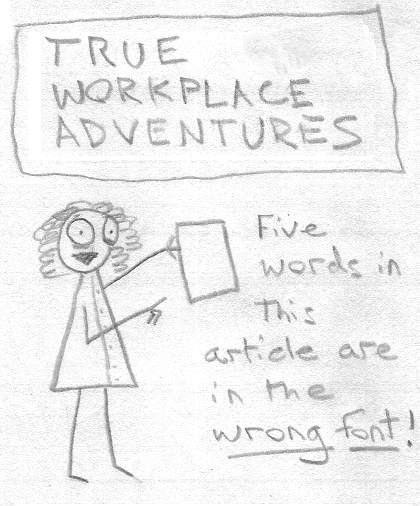 TRUE
WORKPLACE
ADVENTURES
Five
words in
this
article are
in the
wrong font!